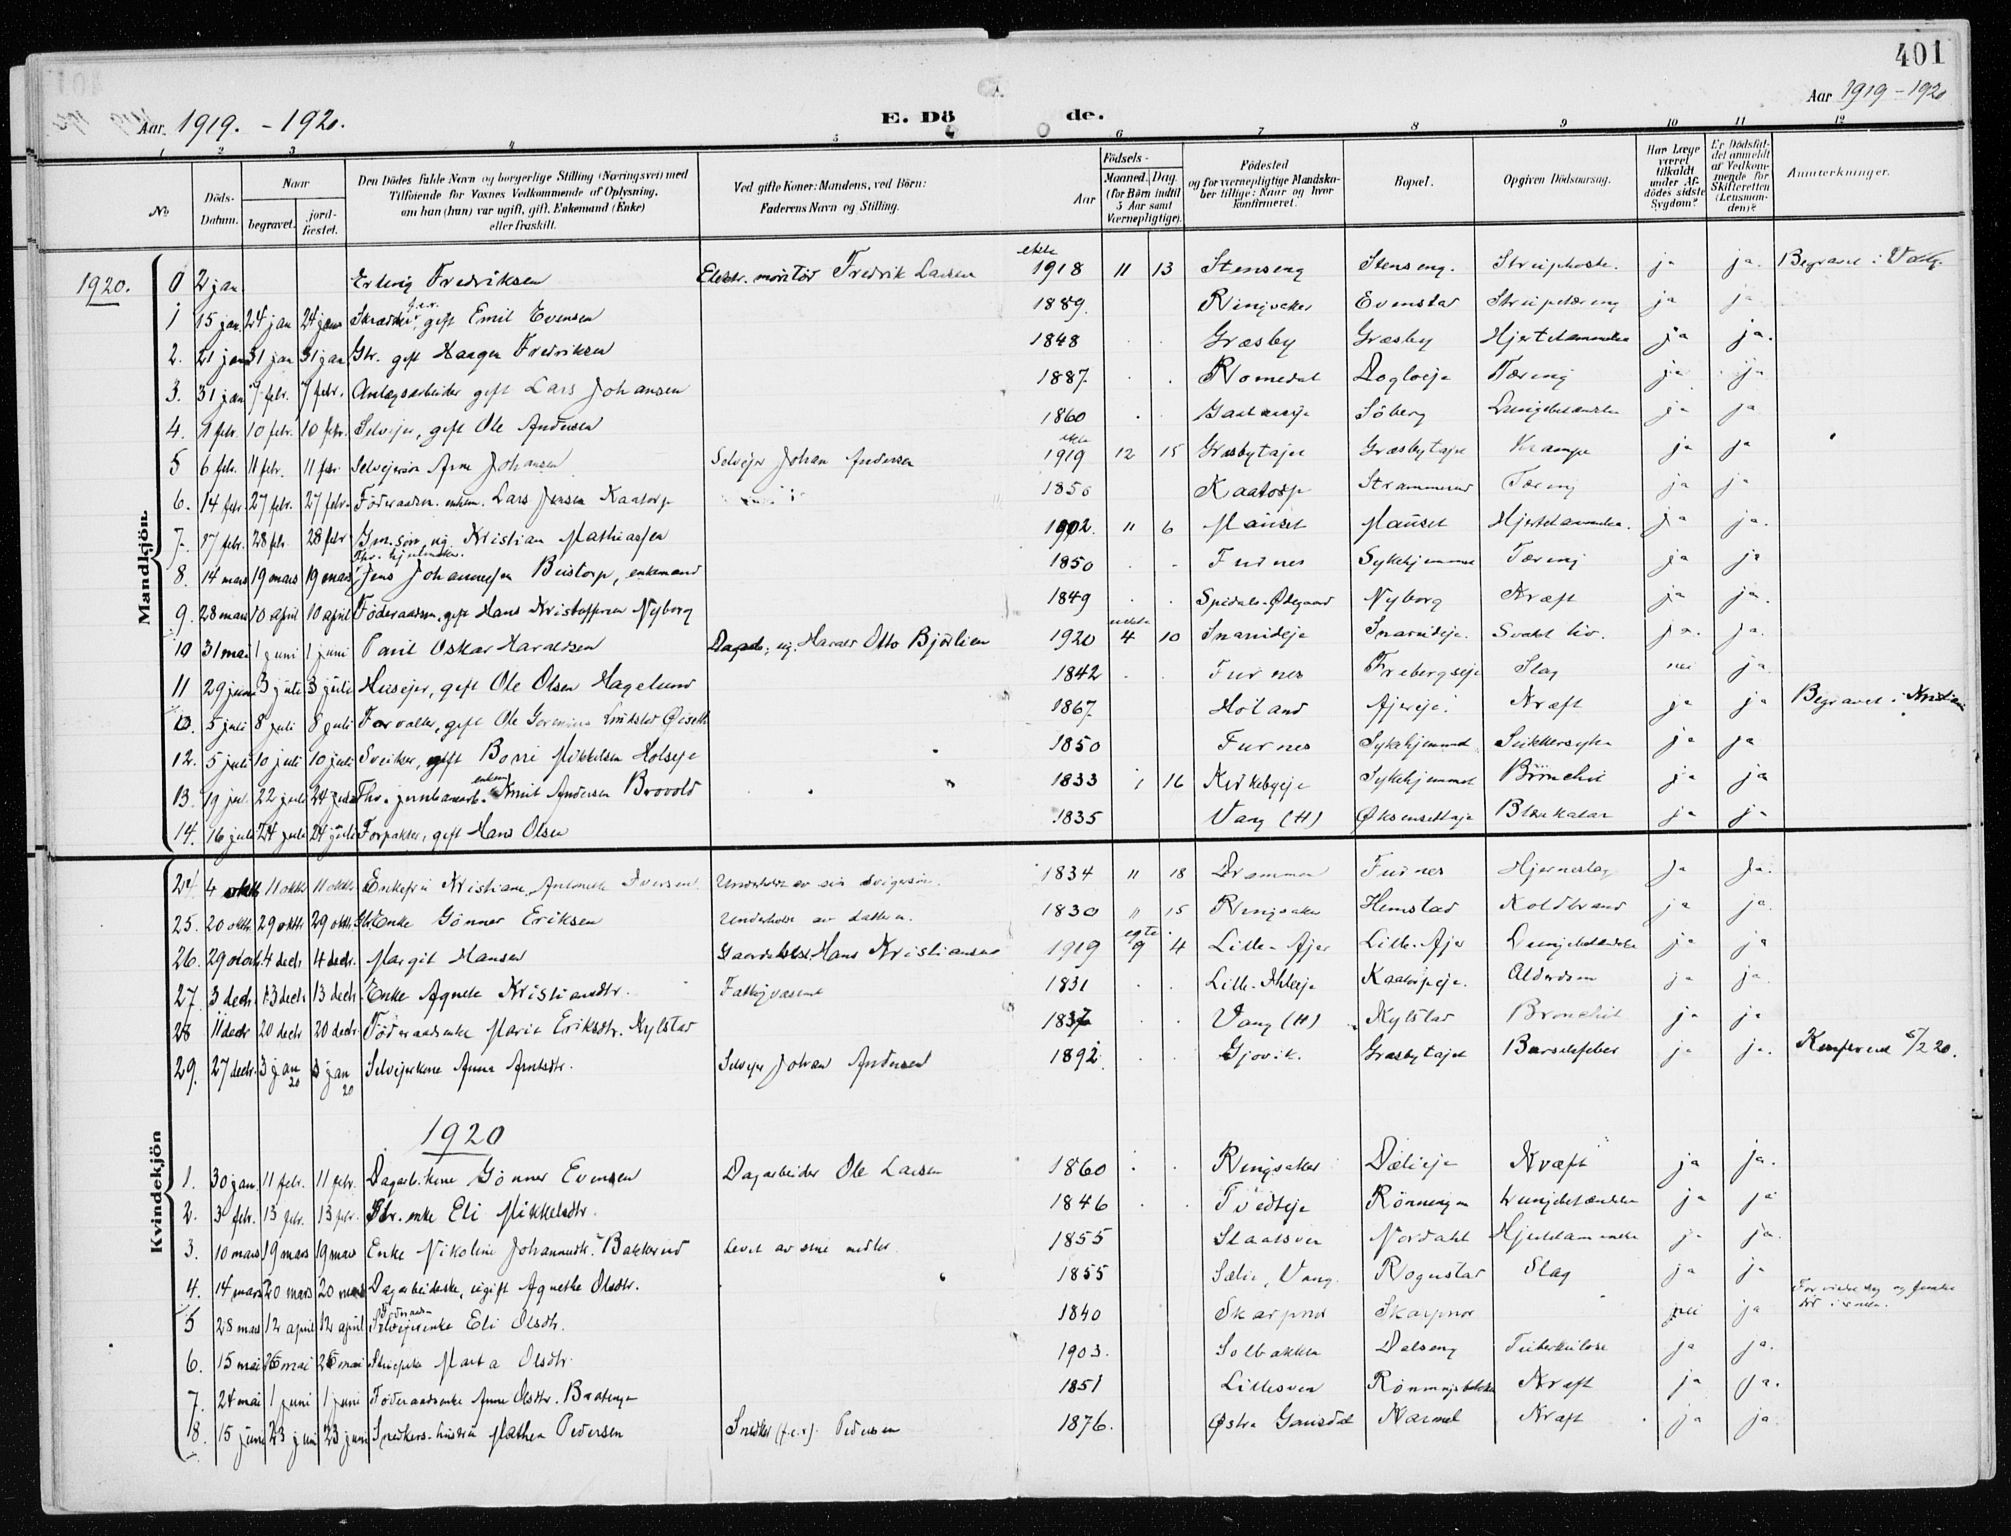 401
Aar 1919. - 1920.
E. Dö de.
Aar 1919 - 1920
1 2 3 4 5 6 7 8 9 10 11 12
No
Döds-Datum.
Naar
begravet.
jord-fæstet.
Den Dödes fulde Navn og borgerlige Stilling (Næringsvei) med Tilföiende for Voxnes Vedkommende af Oplysning, om han (hun) var ugift, gift, Enkemand (Enke) eller fraskilt.
Ved gifte Koner: Mandens, ved Börn: Faderens Navn og Stilling.
Födsels-
Aar
Maaned. Dag.
(for Börn indtil 5 Aar samt Værnepligtige).
Födested og for værnepligtige Mandskaber tillige: Naar og hvor konfirmeret.
Bopæl.
Opgiven Dödsaarsag.
Har Læge været tilkaldt under Afdödes sidste Sygdom?
Er Dödsfaldet anmeldt af Vedkommende for Skifteretten (Lensmanden)?
Anmærkninger.
Mandkjön.
1920. 0 2 jan Erling Fredriksen Elektr. montör Fredrik Larsen ekte 1918 11 13 Stenseng Stenseng. Strupehoste. ja ja. Begravet i
1 15 jan. 24 jan 24 jan Skrædder, gift Emil Evensen 1889. Ringsaker Evenstad Strupetæring ja ja
2. 21 jan 31 jan 31 jan Gbr. gift Haagen Fredriksen 1848 Græsby Græsby Hjertelammelse ja ja.
3. 31 jan 7 febr. 7 febr. Anlægsarbeider gift Lars Johansen 1887. Romedal Tæring ja ja
4. febr. 10 febr. 10 febr. Selveier, gift Ole Andersen 1860 Söberg Lungebetændelse ja ja
5 6 febr. 11 febr. 11 febr. Selveiersön Arne Johansen Selvejer Johan Andersen ekte 1919 12 15 Græsbytajet Græsbytajet Krampe ja ja
6. 14 febr. 27 febr. 27 febr. Föderaadsm. enkem. Lars Jensen Kaatorp Kaatorp Tæring ja ja
7. 17 febr. 28 feb. 28 febr Gm. sön, ug. Kristian Mathiassen 1902. 11 6 Mauset Mauset Hjertelammelse. ja ja.
8. 14 mars 19 mars 19 mars Jens Johannessen Bustorp, enkemand 1850 Furnes Sykehjemmet Tæring ja ja
9. 28 mars 10 april 10 april Föderaadsm. gift Hans Kristoffersen Nyborg 1849 Spidals-Ødegaard Nyborg Kræft ja ja.
10 31 mai 1 juni 1 juni Paul Oskar Haraldsen ug. Harald Otto Björlien uekte 1920 4 10 Snarudeje Snarudeje. Svakt liv. ja. ja.
11 29 juni 3 juli 3 juli Huseier, gift Ole Olsen Hagelund 1842 Furnes Frebergseje Slag nei ja
5 juli 8 juli 8 juli Forvalter, gift Ole 1867. Höland Ajereje. Kræft ja ja Begravet i
12. 5 juli 10 juli 10 juli gift Borni Mikkelsen Holseje 1850 Furnes Sykehjemmet Sukkersyke ja ja
13. 19 jul. 22 juli 24 juli enkem Knut Andersen Brovold 1833 1 16 Kirkebyeje Sykehjemmet ja ja
14. 16 juli 24 juli 24 juli Forpakter, gift Hans Olsen 1835 Vang (H) Blærekatar ja ja
Kvindekjön
24 4 oktb 11 oktb 11 oktb Enkefru Kristiane Antonette Iversen Underholdt av sin svigersön. 1834 11 18 Drammen Furnes Hjerneslag ja ja.
25. 20 oktb 29 oktb 29 oktb Gbr. Enke Gönner Eriksen Underholdt av datteren. 1830 11 15 Ringsaker Hemstad Koldbrand ja ja.
26. 29 4 decbr. 4 decbr. Margit Hansen Hans Kristiansen egte 1919 9 4 Lille-Ajer Lille-Ajer Lungebetændelse ja ja
27. 3 decbr. 13 decb 13 decb Enke Agnete Kristiansdtr. Fattigvæsenet 1831 Alderdom ja ja.
28 11 decbr 20 decb 20 decbr. Föderaadsenke Marie Eriksdtr. Kylstad 1837 Vang (H) Kylstad Bronchit ja ja
29. 27 decbr. 3 jan 20 3 jan 20 Selveierkone Anna Arntsdtr. Selveier Johan Andersen 1892 Gjövik. Græsbytajet Barselfeber ja ja. 5/2 20.
1920
1. 30 jan. 11 febr. 11 febr. Dagarb.kone Gönner Evensen Dagarbeider Ole Larsen 1860 Ringsaker Dælieje Kræft ja ja.
2. 3 febr. 13 febr. 13 febr. enke Eli Mikkelsdtr. 1846 Tvedteje Rönningen Lungebetændelse ja ja
3. 10 mars 19 mars 19 mars Enke Nikoline Johannesdtr. Bakkerud Levet av sine midler. 1855 Staalsven Nordahl Hjertelammelse ja ja.
4. 14 mars 20 mars 20 mars Dagarbeiderske, ugift Agnethe Olsdtr. 1855 Sælie, Vang. Rogustad Slag ja ja
5 28 mars 12 april 12 april enke Eli Olsdtr. 1840 Skarpnor Skarpnor nei ja
6. 15 mai 26 mai 26 mai Marta Olsdtr. 1903. Solbakken Dalseng Tuberkulose ja ja.
7. 24 mai 1 juni 1 juni Föderaadsenke Anne Olsdtr. Bratenge 1851 Lillesven Kræft ja ja.
8. 15 juni 23 juni 23 juni Snedkers hustru Mathea Pedersen Snedker (f.e.v). Pedersen 1876. Østre Gausdal Karmel Kræft ja ja